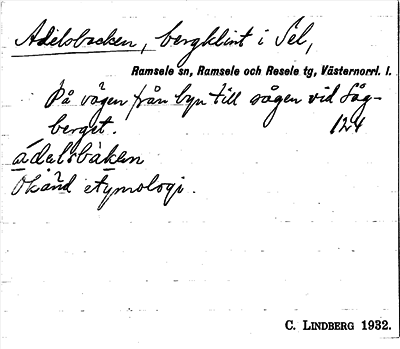 Adelsbacken, bergklint i Sel,
Ramsele sn, Ramsele och Resele tg, Västernorrl. l.
På vägen från byn till sågen vid Såg-
berget. 124
ádelsbàken
Okänd etymologi.
C. LINDBERG 1932.